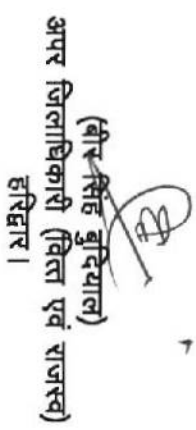 (बीर सिंह बुदियाल)
अपर जिलाधिकारी (वित्त एवं राजस्व)
हरिद्वार।